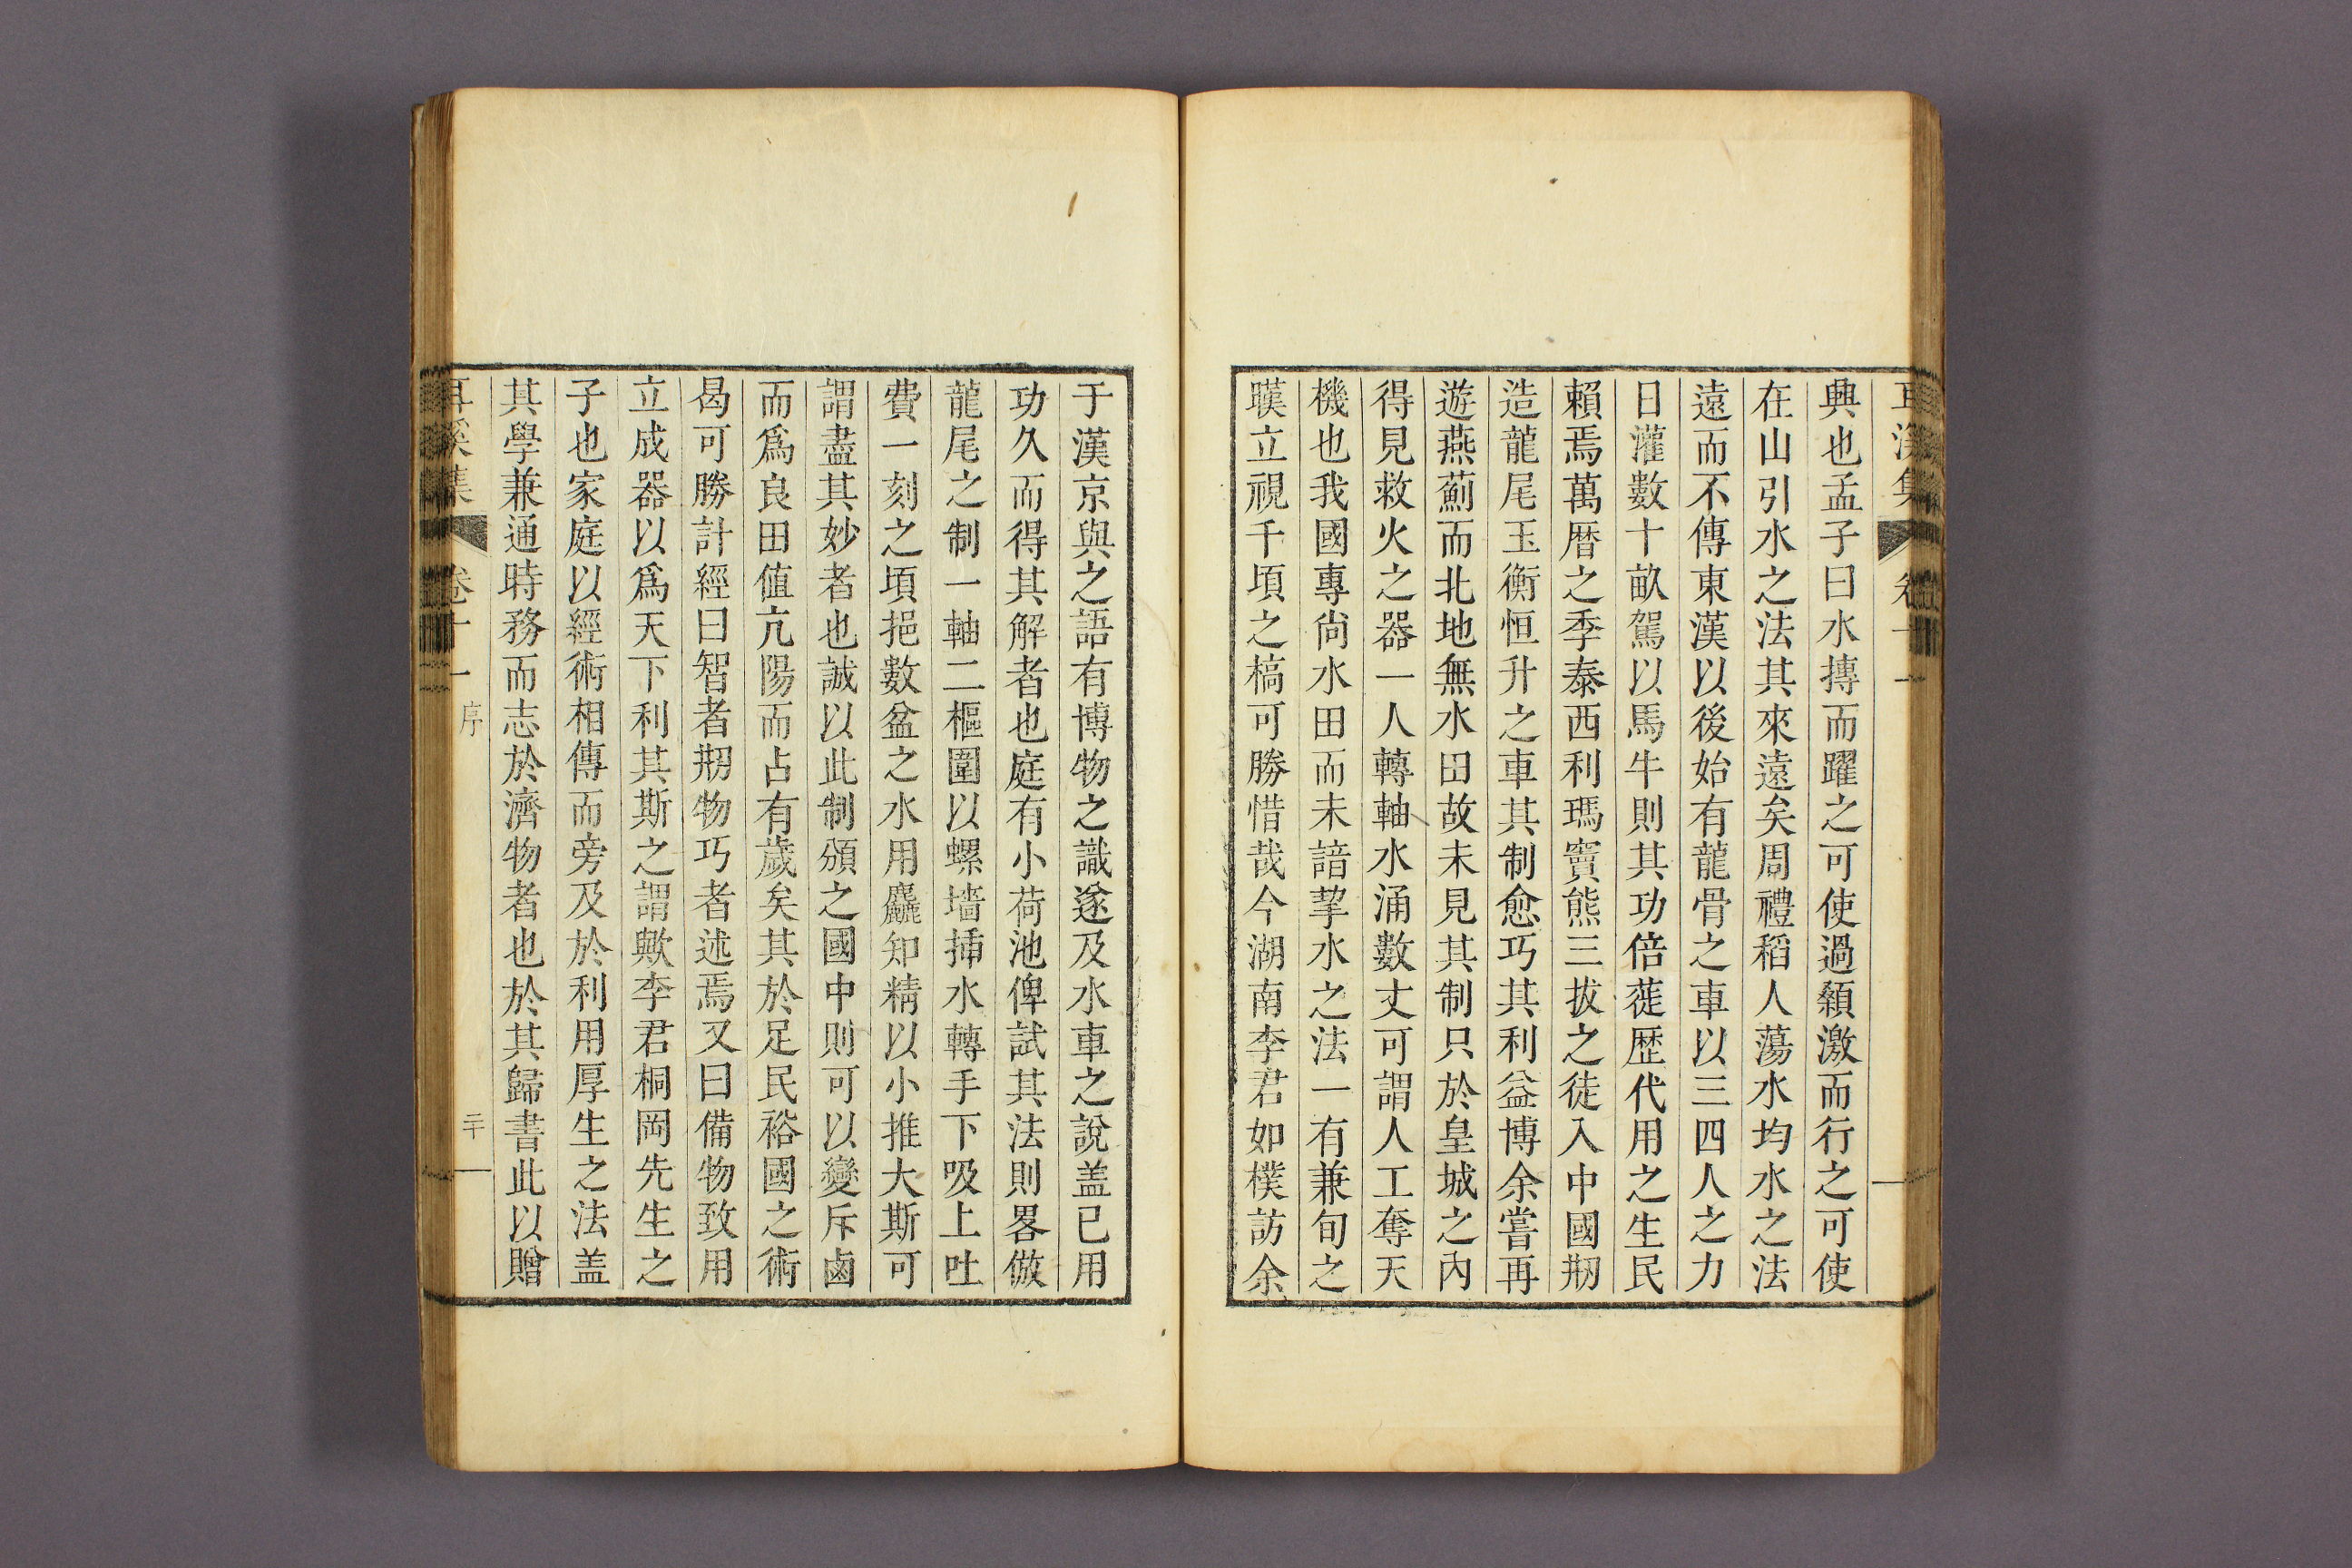 耳溪集 卷十一
興也孟子曰水摶而躍之可使過顙激而行之可使
在山引水之法其來遠矣周禮稻人蕩水均水之法
遠而不傳東漢以後始有龍骨之車以三四人之力
日灌數十畝駕以馬牛則其功倍蓰歷代用之生民
賴焉萬曆之季泰西利瑪竇熊三拔之徒入中國刱
造龍尾玉衡恒升之車其制愈巧其利益博余嘗再
遊燕薊而北地無水田故未見其制只於皇城之內
得見救火之器一人轉軸水涌數丈可謂人工奪天
機也我國專尙水田而未諳挈水之法一有兼旬之
暵立視千頃之槁可勝惜哉今湖南李君如樸訪余
于漢京與之語有博物之識遂及水車之說盖已用
功久而得其解者也庭有小荷池俾試其法則畧倣
龍尾之制一軸二樞圍以螺墻揷水轉手下吸上吐
費一刻之頃挹數盆之水用麤知精以小推大斯可
謂盡其妙者也誠以此制頒之國中則可以變斥鹵
而爲良田值亢陽而占有歲矣其於足民裕國之術
曷可勝計經曰智者刱物巧者述焉又曰備物致用
立成器以爲天下利其斯之謂歟李君桐岡先生之
子也家庭以經術相傳而旁及於利用厚生之法盖
其學兼通時務而志於濟物者也於其歸書此以贈
耳溪集 卷十一 序 二十